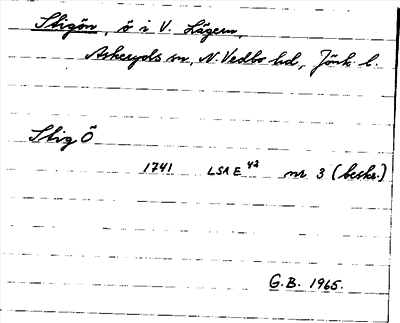 Stigön, ö i V. Lägern,
Askeryds sn, N. Vedbo hd, Jönk. l.
Stig Ö
1741 LSA E 42 nr 3 (beskr.)
G.B. 1965.